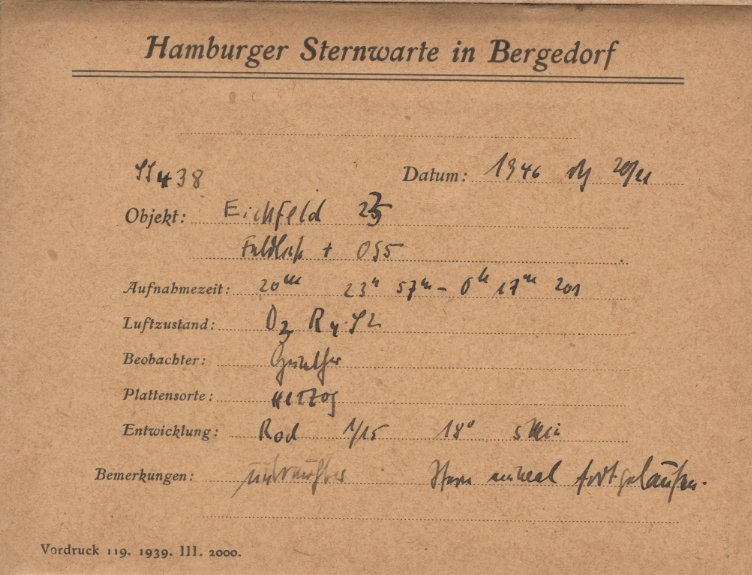 Hamburger Sternwarte in Bergedorf
Datum: 1946 20/21
Objekt: Eichfeld
+ 055
Aufnahmezeit: 20m 23h 57m – 0h 17m
Luftzustand: D3 R4 S2
Beobachter: Günther
Plattensorte: Herzog
Entwicklung: Rod 1/15 18° 5 Min
Bemerkungen: Stern einmal fortgelaufen.
Vordruck 119. 1939. III. 2000.